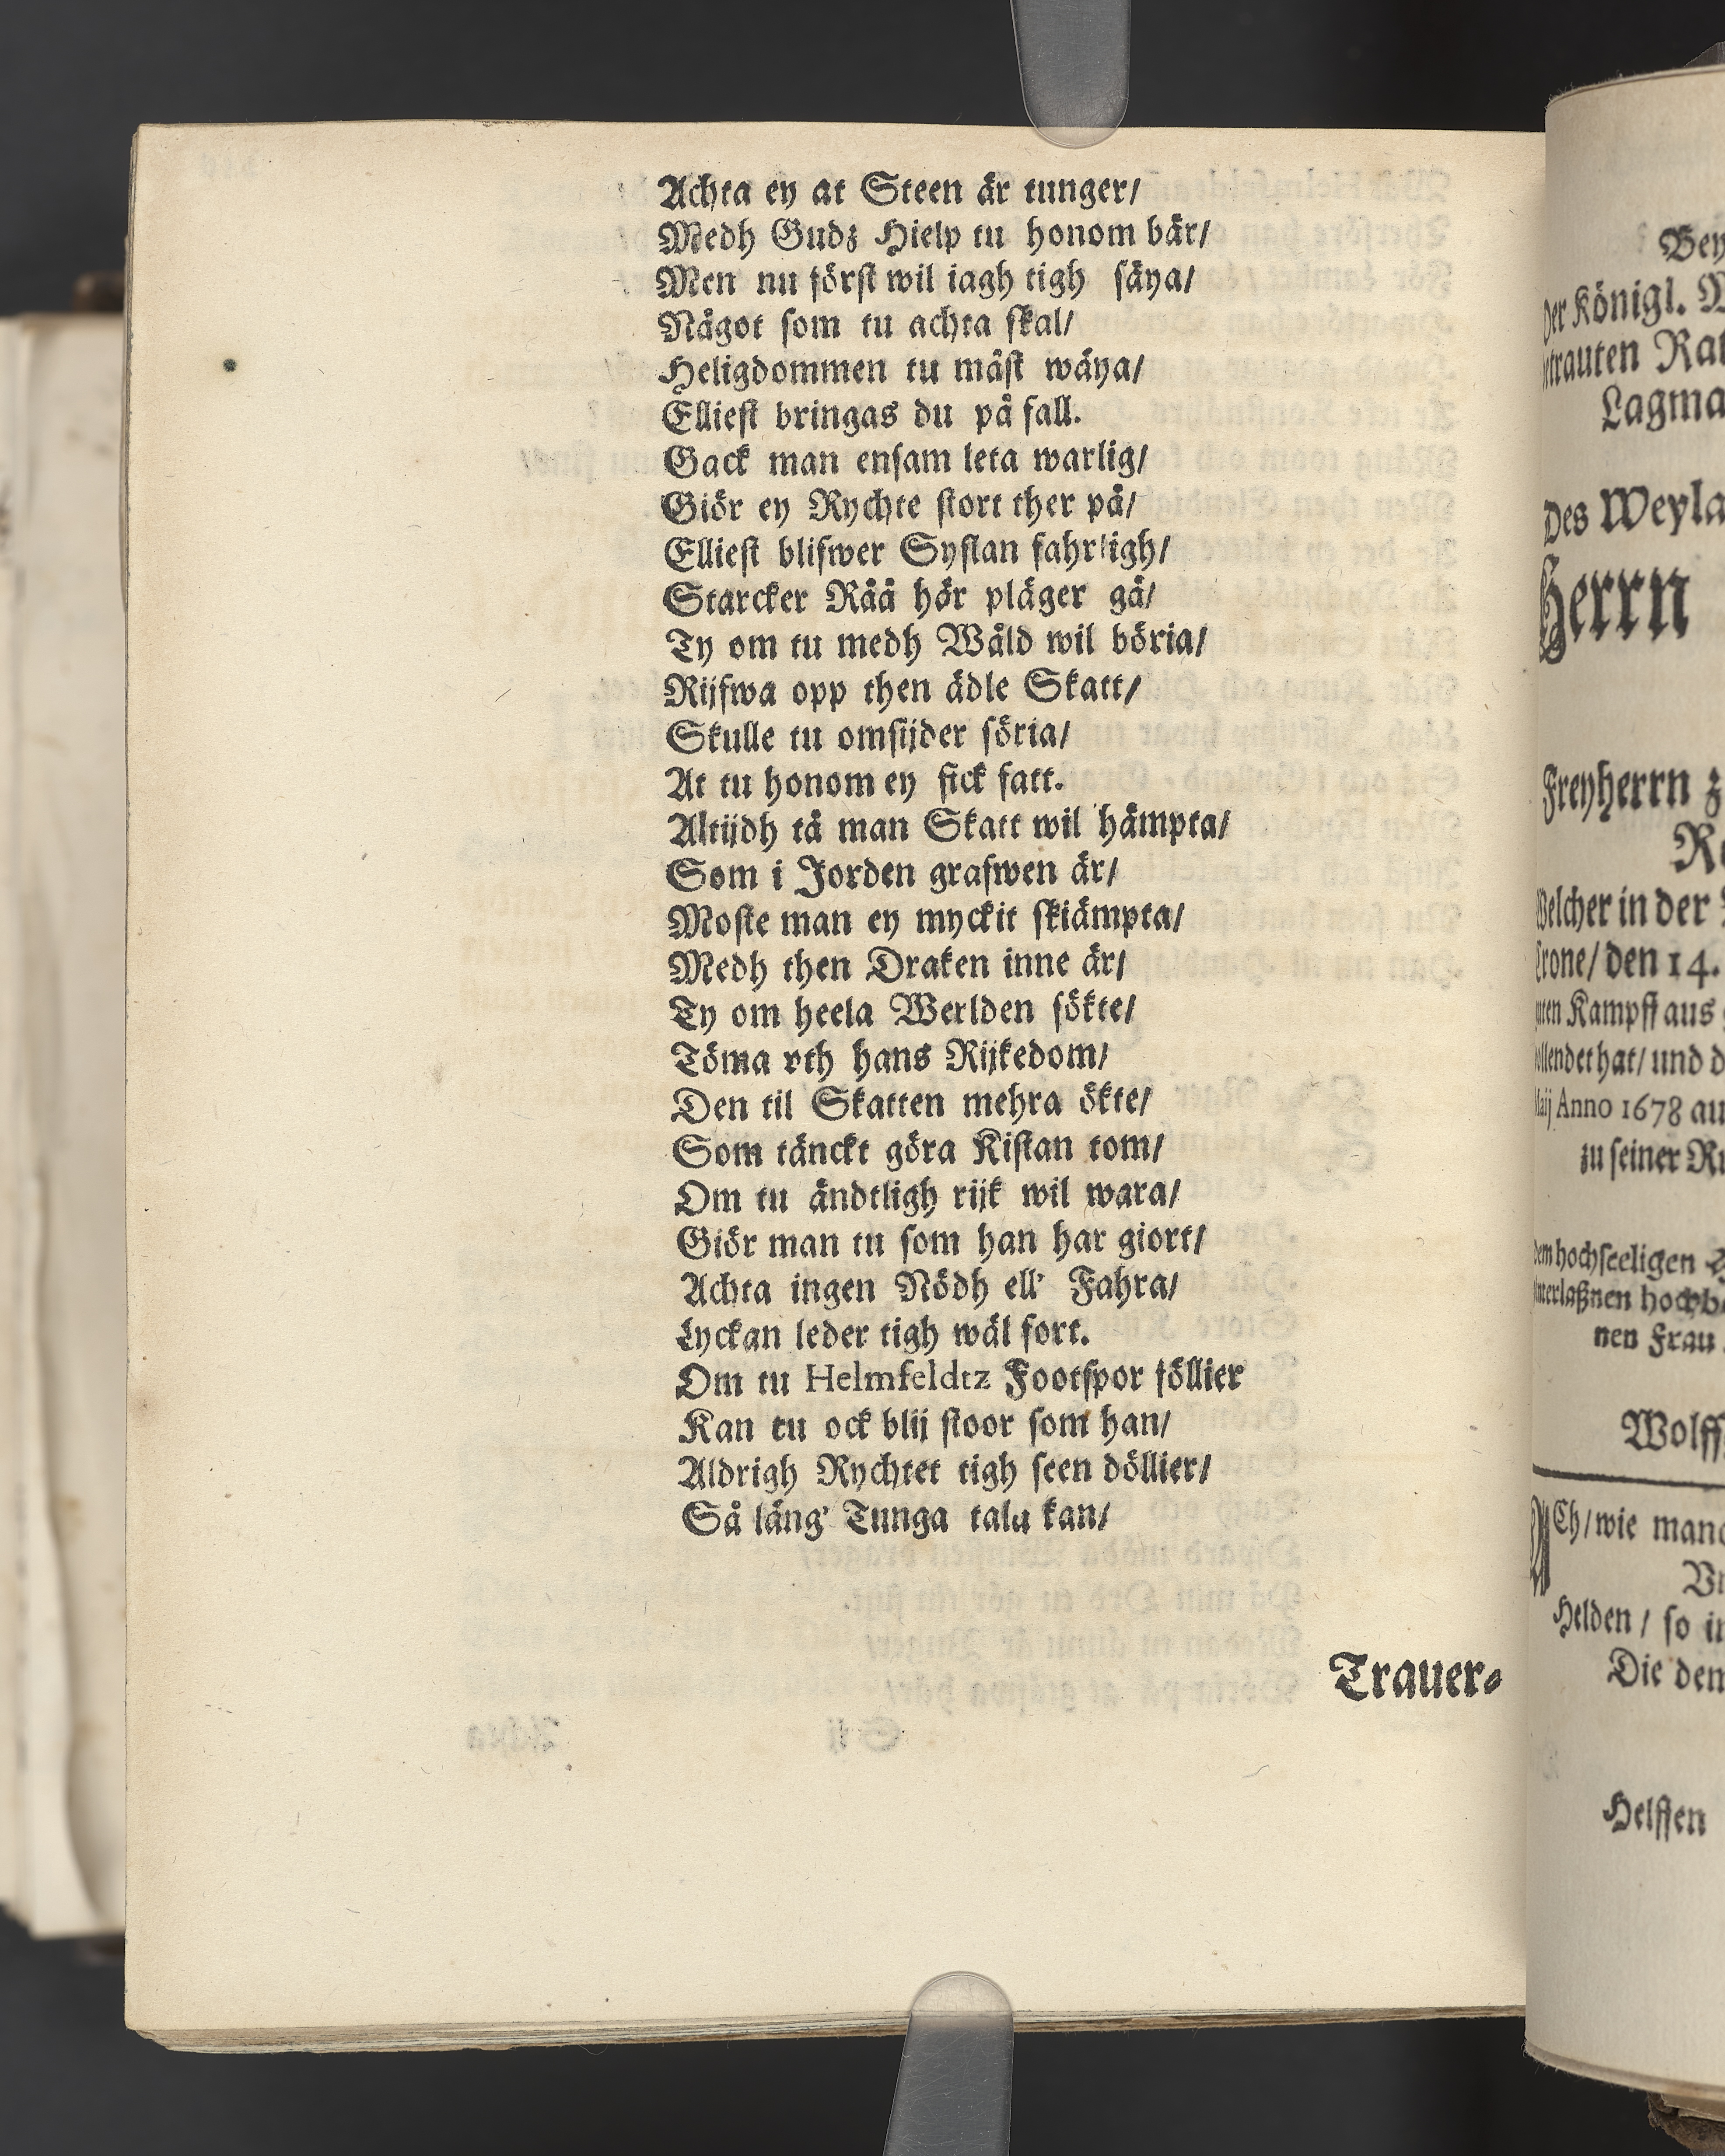 Achta ey at Steen är tunger/
Medh Gudz Hielp tu honom bär/
Men nu först wil iagh tigh säya/
Något som tu achta skal/
Heligdommen tu mäst wäya/
Elliest bringas du på fall.
Gack man ensam leta warlig/
Giör ey Rychte stort ther på/
Elliest blifwer Systan fahrligh/
Starcker Råå här pläger gå/
Ty om tu medh Wåld wil böria/
Rijfwa opp then ädle Skatt/
Skulle tu omsijder söria/
At tu honom ey fick fatt.
Altijdh tå man Skatt wil hämpta/
Som i Jorden grafwen är/
Moste man ey myckit skiämpta/
Medh then Draken inne är/
Ty om heela Werlden sökte/
Töma vth hans Rijkedom/
Den til Skatten mehra ökte/
Som tänckt göra Kistan tom/
Om tu ändtligh rijk wil wara/
Giör man tu som han har giort/
Achta ingen Nödh ell' Fahra/
Lyckan leder tigh wäl fort.
Om tu Helmfeldtz Footspor föllier
Kan tu ock blij stoor som han/
Aldrigh Rychtet tigh seen döllier/
Så läng' Tunga tala kan/
Trauer-
Bey
Der Königl. M
trauten Rat
Lagma
Des Weyla
Herrn
Freyherrn z
Re
Welcher in der
Crone/ den 14.
Kampff aus
ollendet hat/ und d
Maij Anno 1678 au
zu seiner Ru
dem hochseeligen
hochb
nen Frau
Wolff
ACh/wie manc
Vn
Helden/ so in
Die dem
Helffen